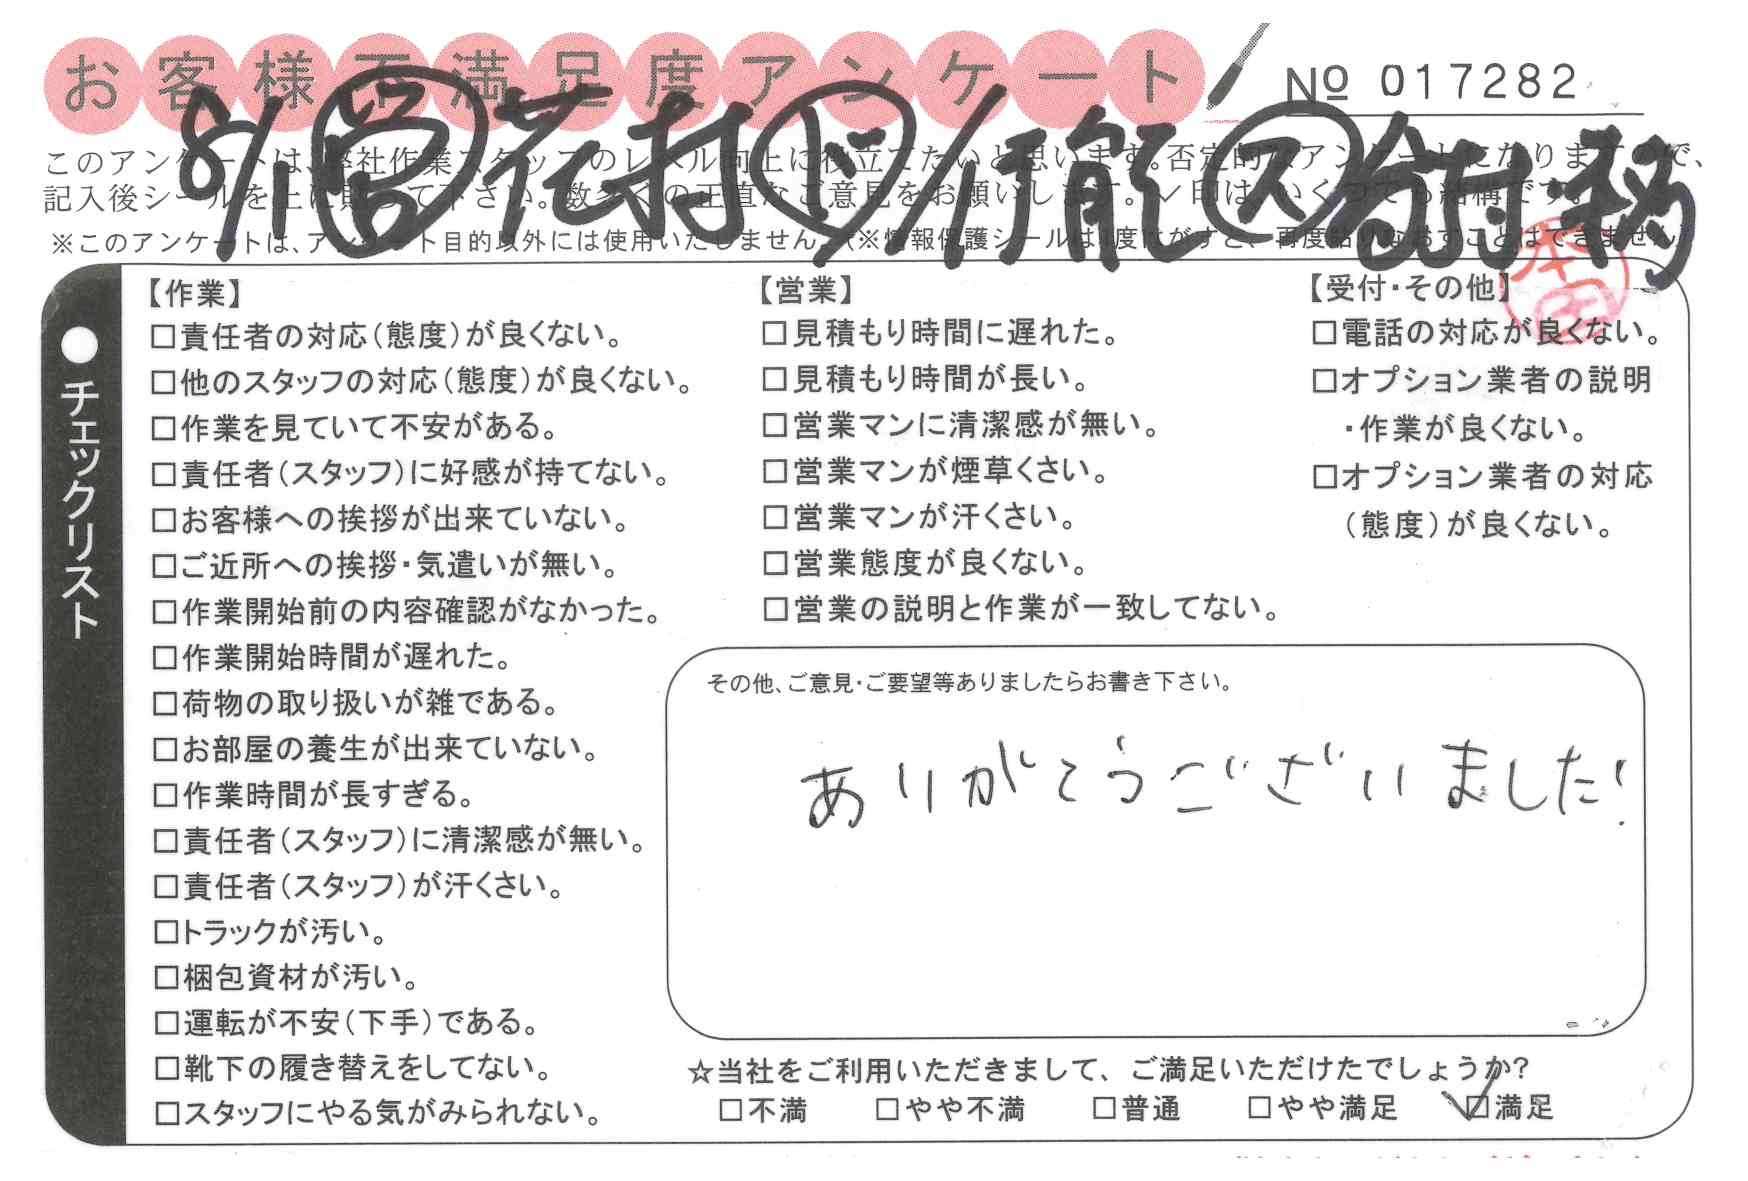 お客様不満足度アンケート
№ 017282
8/1 営 花村 ド 伊能 ス 谷村・
このアンケートは、弊社作業スタッフのレベル向上に役立てたいと思います。否定的なアンケートになりますので、
記入後シールを上に貼って下さい。数多くの正直なご意見をお願いします。✓印は、いくつでも結構です。
※このアンケートは、アンケート目的以外には使用いたしません。(※情報保護シールは1度はがすと、再度貼りなおすことはできません)
チェックリスト
【作業】
□責任者の対応(態度)が良くない。
□他のスタッフの対応(態度)が良くない。
□作業を見ていて不安がある。
□責任者(スタッフ)に好感が持てない。
□お客様への挨拶が出来ていない。
□ご近所への挨拶・気遣いが無い。
□作業開始前の内容確認がなかった。
□作業開始時間が遅れた。
□荷物の取り扱いが雑である。
□お部屋の養生が出来ていない。
□作業時間が長すぎる。
□責任者(スタッフ)に清潔感が無い。
□責任者(スタッフ)が汗くさい。
□トラックが汚い。
□梱包資材が汚い。
□運転が不安(下手)である。
□靴下の履き替えをしてない。
□スタッフにやる気がみられない。
【営業】
□見積もり時間に遅れた。
□見積もり時間が長い。
□営業マンに清潔感が無い。
□営業マンが煙草くさい。
□営業マンが汗くさい。
□営業態度が良くない。
□営業の説明と作業が一致してない。
【受付・その他】
□電話の対応が良くない。
□オプション業者の説明
・作業が良くない。
□オプション業者の対応
(態度)が良くない。
その他、ご意見・ご要望等ありましたらお書き下さい。
ありがとうございました!
☆当社をご利用いただきまして、ご満足いただけたでしょうか?
□不満 □やや不満 □普通 □やや満足 ☑満足